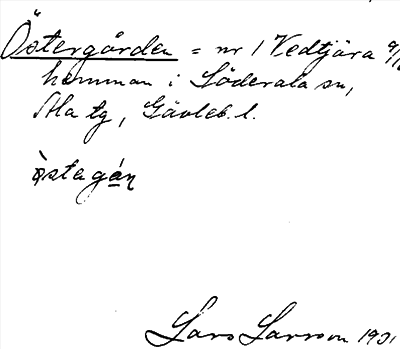 Östergården = nr 1 Vedtjära
hemman i Söderala sn,
Ala tg, Gävleb. l.
östagán
Lars Larsson 1931